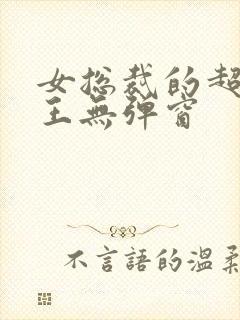 女总裁的超
王无弹窗
不言語的溫柔